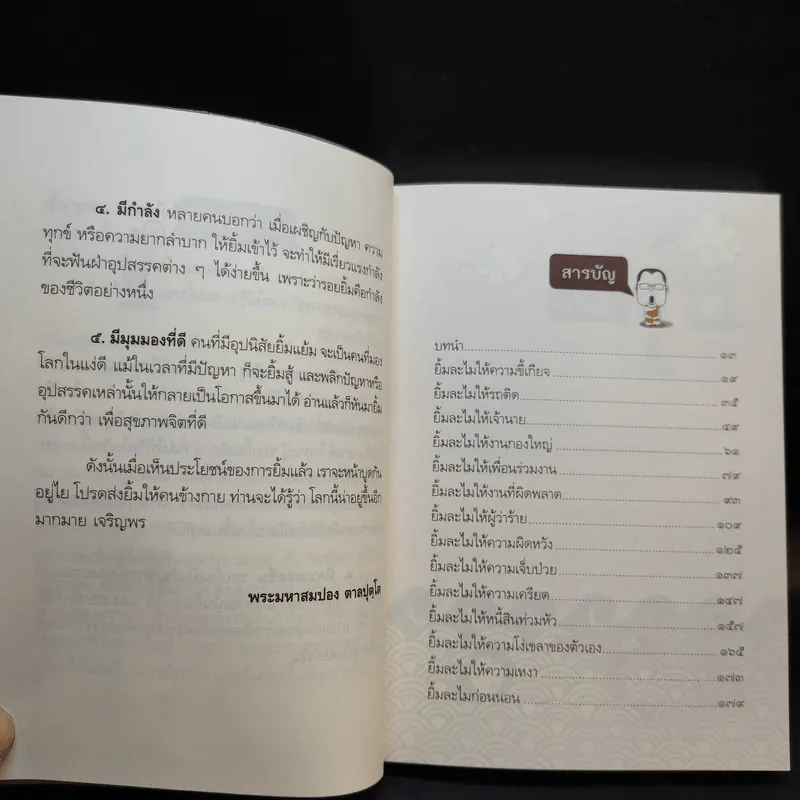 ๔. มีกำลัง หลายคนบอกว่า เมื่อเผชิญกับปัญหา ความ
ทุกข์ หรือความยากลำบาก ให้ยิ้มเข้าไว้ จะทำให้มีเรี่ยวแรงกำลัง
ที่จะฟันฝ่าอุปสรรคต่าง ๆ ได้ง่ายขึ้น เพราะว่ารอยยิ้มคือกำลัง
ของชีวิตอย่างหนึ่ง
๕. มีมุมมองที่ดี คนที่มีอุปนิสัยยิ้มแย้ม จะเป็นคนที่มอง
โลกในแง่ดี แม้ในเวลาที่มีปัญหา ก็จะยิ้มสู้ และพลิกปัญหาหรือ
อุปสรรคเหล่านั้นให้กลายเป็นโอกาสขึ้นมาได้ อ่านแล้วก็หันมายิ้ม
กันดีกว่า เพื่อสุขภาพจิตที่ดี
ดังนั้นเมื่อเห็นประโยชน์ของการยิ้มแล้ว เราจะหน้าบูดกัน
อยู่ไย โปรดส่งยิ้มให้คนข้างกาย ท่านจะได้รู้ว่า โลกนี้น่าอยู่ขึ้นอีก
มากมาย เจริญพร
พระมหาสมปอง ตาลปุตฺโต
สารบัญ
บทนำ ๑๓
ยิ้มละไมให้ความขี้เกียจ ๑๙
ยิ้มละไมให้รถติด ๓๕
ยิ้มละไมให้เจ้านาย ๔๙
ยิ้มละไมให้งานกองใหญ่ ๖๑
ยิ้มละไมให้เพื่อนร่วมงาน ๗๙
ยิ้มละไมให้งานที่ผิดพลาด ๙๓
ยิ้มละไมให้ผู้ว่าร้าย ๑๐๙
ยิ้มละไมให้ความผิดหวัง ๑๒๕
ยิ้มละไมให้ความเจ็บป่วย ๑๓๗
ยิ้มละไมให้ความเครียด ๑๔๗
ยิ้มละไมให้หนี้สินท่วมหัว ๑๕๗
ยิ้มละไมให้ความโง่เขลาของตัวเอง ๑๖๕
ยิ้มละไมให้ความเหงา ๑๗๓
ยิ้มละไมก่อนนอน ๑๗๙